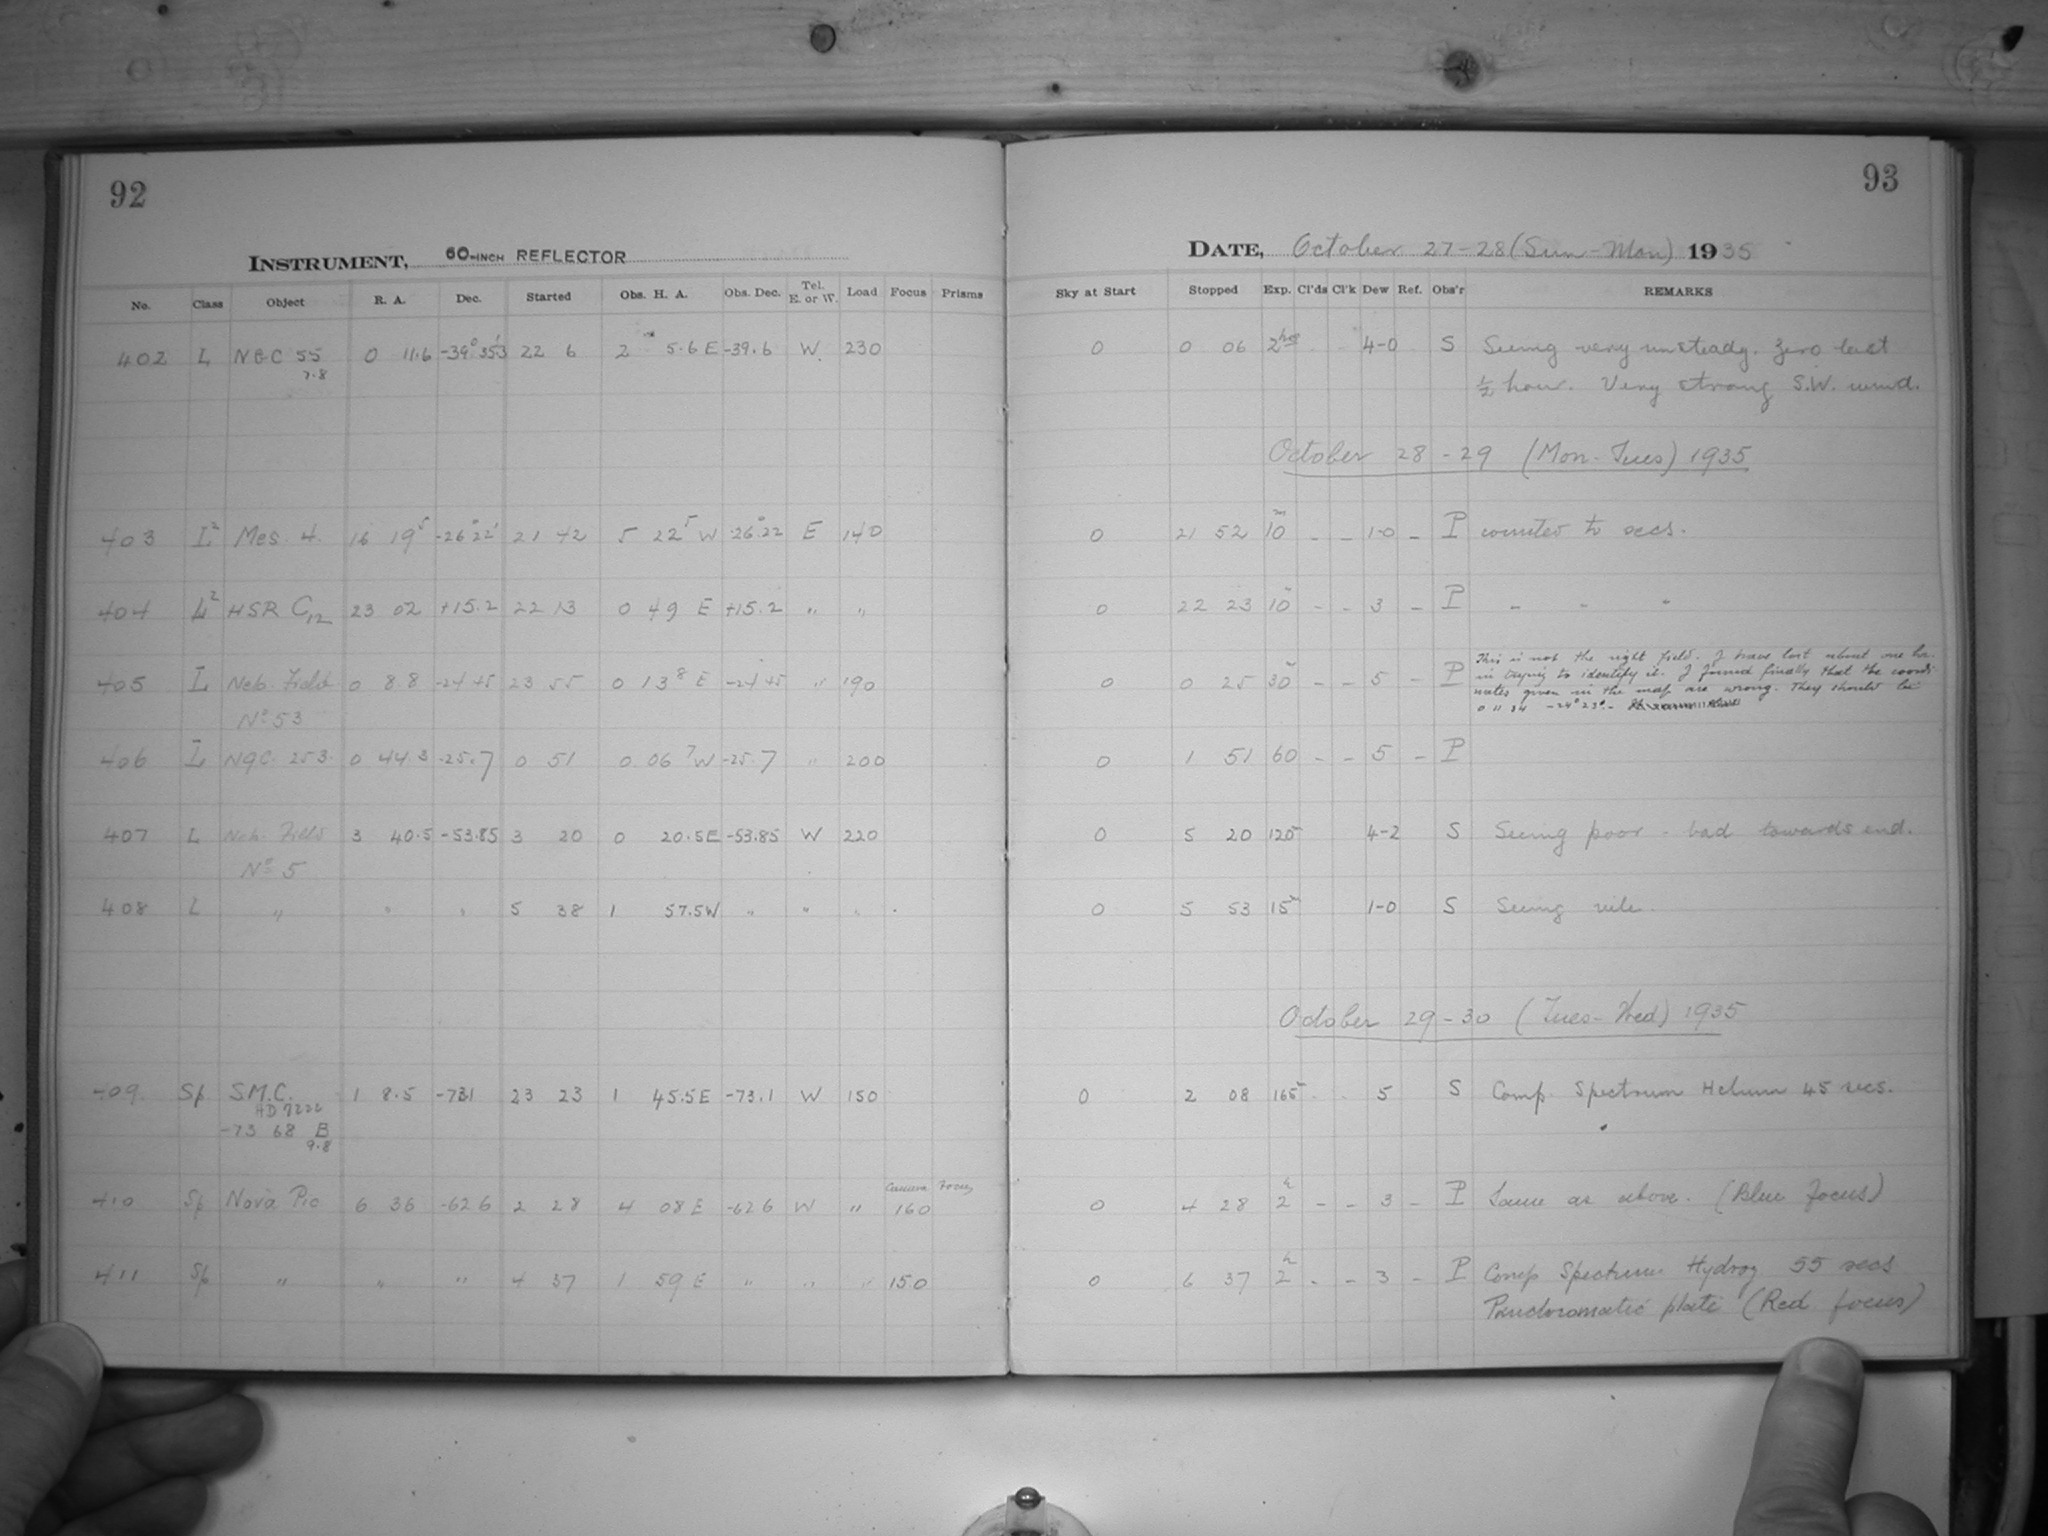 92
INSTRUMENT, 60-INCH REFLECTOR
No. Class Object R. A. Dec. Started Obs. H. A. Obs. Dec. Tel. E. or W. Load Focus Prisms
402 L NGC 55 0 11.6 -39° 35'.3 22 6 2 5.6 E -39.6 W. 230
7.8
403 L² Mes. 4. 16 19⁵ -26° 22' 21 42 5 22⁵ W -26° 22 E 140
404 L² HSR C12 23 02 +15.2 22 13 0 49 E +15.2 " "
405 L Neb. Field 0 8.8 -24 45 23 55 0 13⁸ E -24 45 " 190
Nº 53
406 L NGC. 253. 0 44.3 -25.7 0 51 0 06⁷ W -25.7 " 200
407 L Neb. Field 3 40.5 -53.85 3 20 0 20.5E -53.85 W 220
Nº 5
408 L " " " 5 38 1 57.5W " " "
-09 Sp S.M.C. 1 8.5 -73.1 23 23 1 45.5E -73.1 W 150
HD 7222
-73 68 B
9.8
Camera Focus
410 Sp Nova Pic 6 36 -62 6 2 28 4 08 E -62 6 W " 160
411 Sp " " " 4 37 1 59 E " " " 150
93
DATE, October 27-28 (Sun-Mon) 1935
Sky at Start Stopped Exp. Cl'ds Cl'k Dew Ref. Obs'r REMARKS
0 0 06 2hrs 4-0 S Seeing very unsteady. Zero last
½ hour. Very strong S.W. wind.
October 28-29 (Mon-Tues) 1935
0 21 52 10m - - 1-0 - P counted to secs.
0 22 23 10m - - 3 - P " " "
This is not the right field. I have lost about one hr.
0 0 25 30m - - 5 - P in trying to identify it. I found finally that the coordi-
nates given in the map are wrong. They should be
0 11 34 -24° 23'.-
0 1 51 60 - - 5 - P
0 5 20 120m 4-2 S Seeing poor - bad towards end.
0 5 53 15m 1-0 S Seeing vile.
October 29-30 (Tues-Wed) 1935
0 2 08 165m 5 S Comp. Spectrum Helium 45 secs.
0 4 28 2h - - 3 - P Same as above. (Blue focus)
0 6 37 2h - - 3 - P Comp Spectrum Hydrog 55 secs
Panchromatic plate (Red focus)